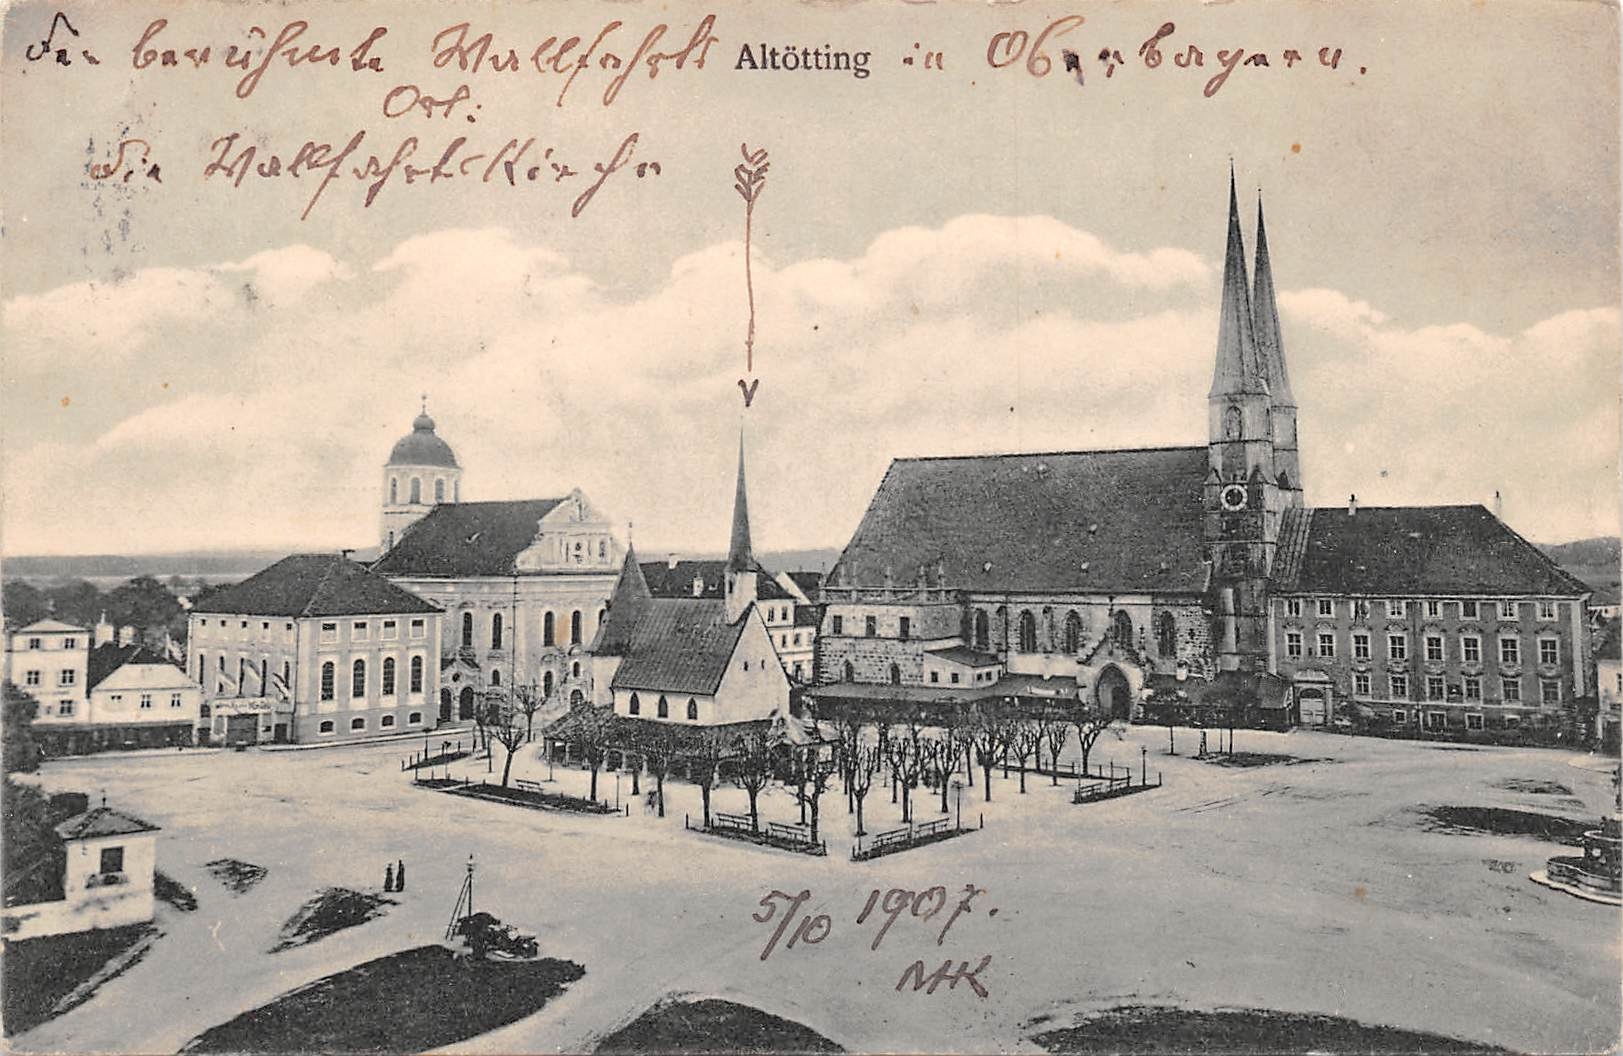 Der berühmte Wallfahrts Altötting in Oberbayern.
Ort:
die Wallfahrts Kirche
5/10 1907.
MK